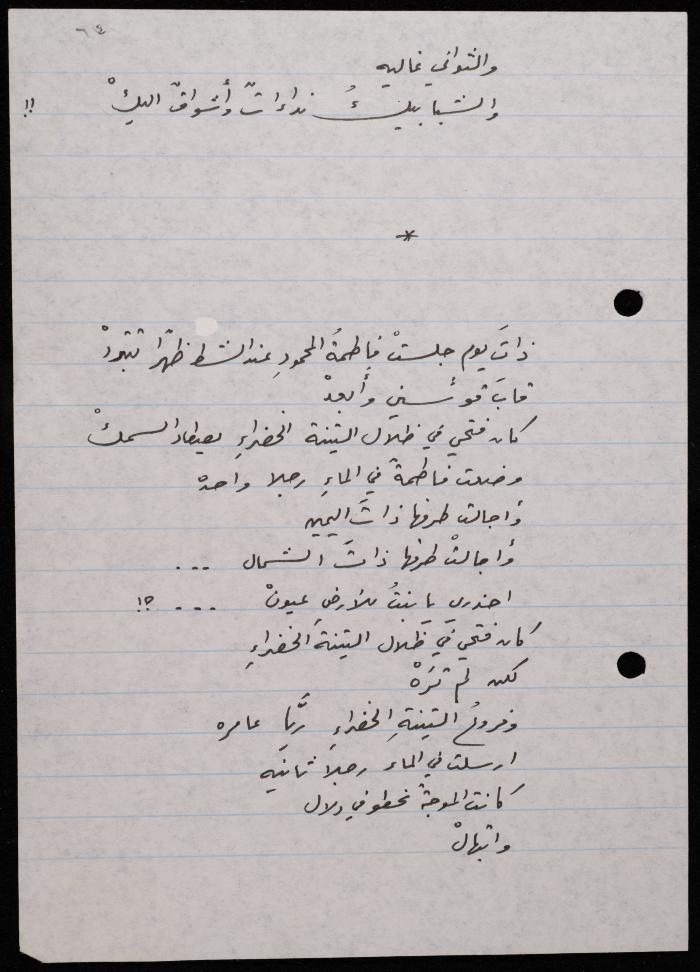 ٦٤
والثواني غاليه
والشبابيكُ نداءاتٌ وأشواقٌ اليكْ !!
*
ذاتَ يوم جلستْ فاطمةُ المحمودِ عند الشط ظهرًا تتبردْ
قابَ قوسين وأبعدْ
كان فتحي في ظلال التينة الخضراءِ يصطاد السمكْ
وضعت فاطمةٌ في الماءِ رجلا واحدهْ
وأجالت طرفها ذاتَ اليمين
وأجالتْ طرفها ذاتَ الشمال ...
احذري يا بنتُ للأرضِ عيونْ .... ؟!
كان فتحي في ظلال التينة الخضراءِ
لكن لم ترَهْ
وفروعُ التينةِ الخضراءِ ربَّما عامره
ارسلت في الماء رجلاً ثانيه
كانت الموجةُ تخطو في دلال
وابتهالْ